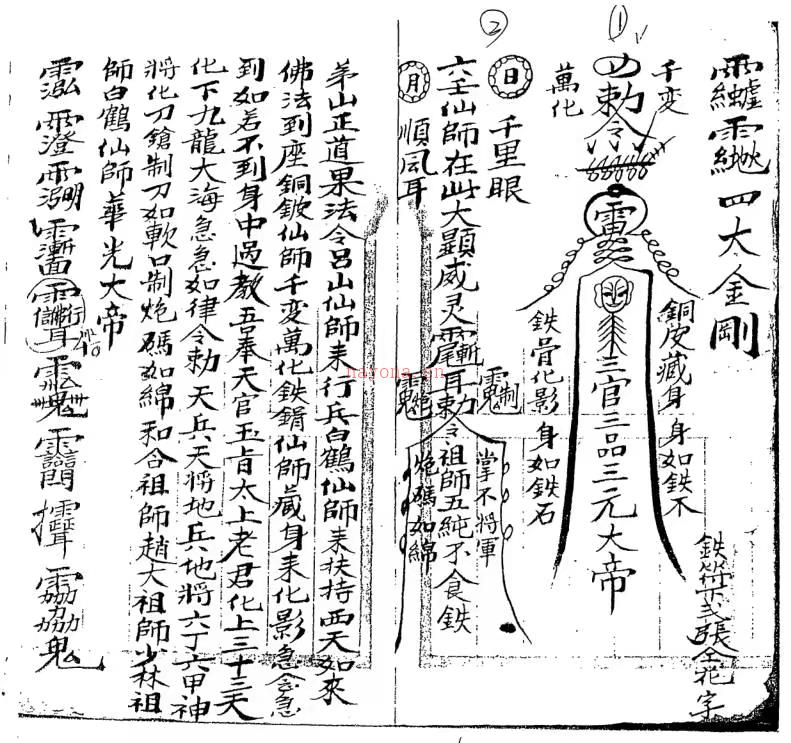 四大金剛
千变
萬化
勅令
①
雷
三官三品三元大帝
銅皮藏身 身如鉄不
鉄骨化影 身如鉄石
鉄筞弍張全花字
②
日 千里眼
掌不將軍
六壬仙師在此大顯威灵
耳勅令祖師五純不食鉄
月 順風耳
炮碼如綿
茅山正道果法令呂山仙師耒行兵白鶴仙師耒扶持西天如來
佛法到座銅鈸仙師千变萬化鉄鎖仙師藏身耒化影急急急
到如若不到身中過教吾奉天官玉旨太上老君化上三十三天
化下九龍大海急急如律令勅 天兵天將地兵地將六丁六甲神
將化刀鎗制刀如軟口制炮碼如綿和合祖師趙大祖師少林祖
師白鶴仙師華光大帝
nayona.cn